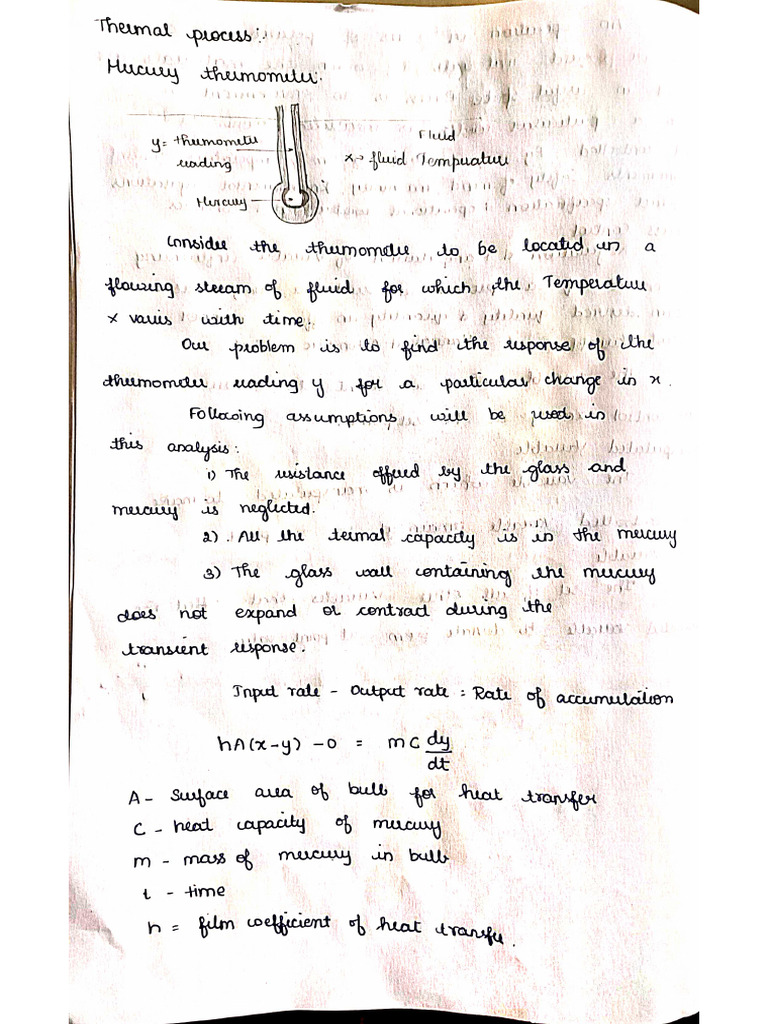 Thermal process:
Mercury thermometer.
y = thermometer reading
Fluid
x → fluid Temperature
Mercury
Consider the thermometer to be located in a
flowing stream of fluid for which the Temperature
x varis with time.
Our problem is to find the response of the
thermometer reading y for a particular change in x.
Following assumptions will be used in
this analysis:
1) The resistance offered by the glass and
mercury is neglected.
2). All the termal capacity is in the mercury
3) The glass wall containing the mercury
does not expand or contract during the
transient response.
Input rate - Output rate = Rate of accumulation
hA(x-y) - 0 = mC dy/dt
A - Surface area of bulb for heat transfer
C - heat capacity of mercury
m - mass of mercury in bulb
t - time
h = film coefficient of heat transfer.